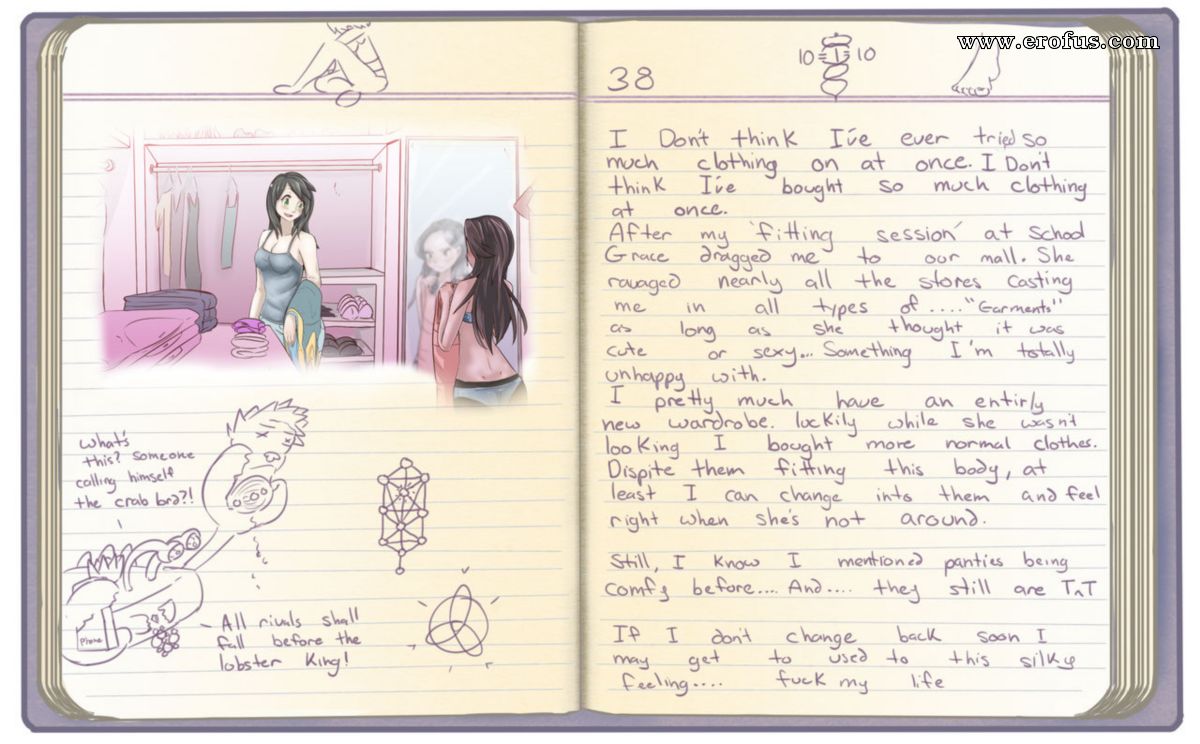 www.erofus.com
What's
this? Someone
calling himself
the crab bro?!
Phone
All rivals shall
fall before the
lobster King!
38
10 10
I Don't think I've ever tried so
much clothing on at once. I Don't
think I've bought so much clothing
at once.
After my 'fitting session' at School
Grace dragged me to our mall. She
ravaged nearly all the stores Casting
me in all types of .... "Garments"
as long as she thought it was
cute or sexy... Something I'm totally
unhappy with.
I pretty much have an entirly
new wardrobe. luckily while she wasn't
looking I bought more normal clothes.
Dispite them fitting this body, at
least I can change into them and feel
right when she's not around.
Still, I know I mentioned panties being
comfy before.... And.... they still are T^T
If I don't change back soon I
may get to used to this silky
feeling.... fuck my life